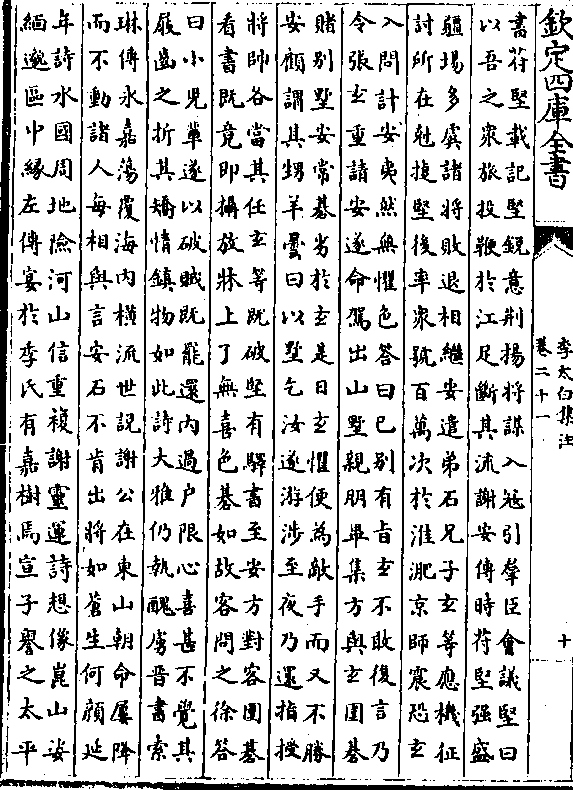 欽定四庫全書
李太白集注
卷二十一
十
書苻堅載記堅鋭意荆揚將謀入冦引羣臣會議堅曰
以吾之衆旅投鞭於江足斷其流謝安傳時苻堅强盛
疆埸多虞諸將敗退相繼安遣弟石兄子玄等應機征
討所在尅捷堅後率衆號百萬次於淮淝京師震恐玄
入問計安夷然無懼色答曰已别有旨玄不敢復言乃
令張玄重請安遂命駕出山墅親朋畢集方與玄圍棊
賭别墅安常棊劣於玄是日玄懼便為敵手而又不勝
安顧謂其甥羊曇曰以墅乞汝遂游涉至夜乃還指授
將帥各當其任玄等既破堅有驛書至安方對客圍棊
看書既竟即攝放牀上了無喜色棊如故客問之徐答
曰小兒軰遂以破賊既罷還内過户限心喜甚不覺其
屐齒之折其矯情鎮物如此詩大雅仍執醜虜晉書索
琳傳永嘉蕩覆海内横流世説謝公在東山朝命屢降
而不動諸人每相與言安石不肯出將如蒼生何顔延
年詩水國周地險河山信重複謝靈運詩想像崑山姿
緬邈區中縁左傳宴於季氏有嘉樹焉宣子譽之太平